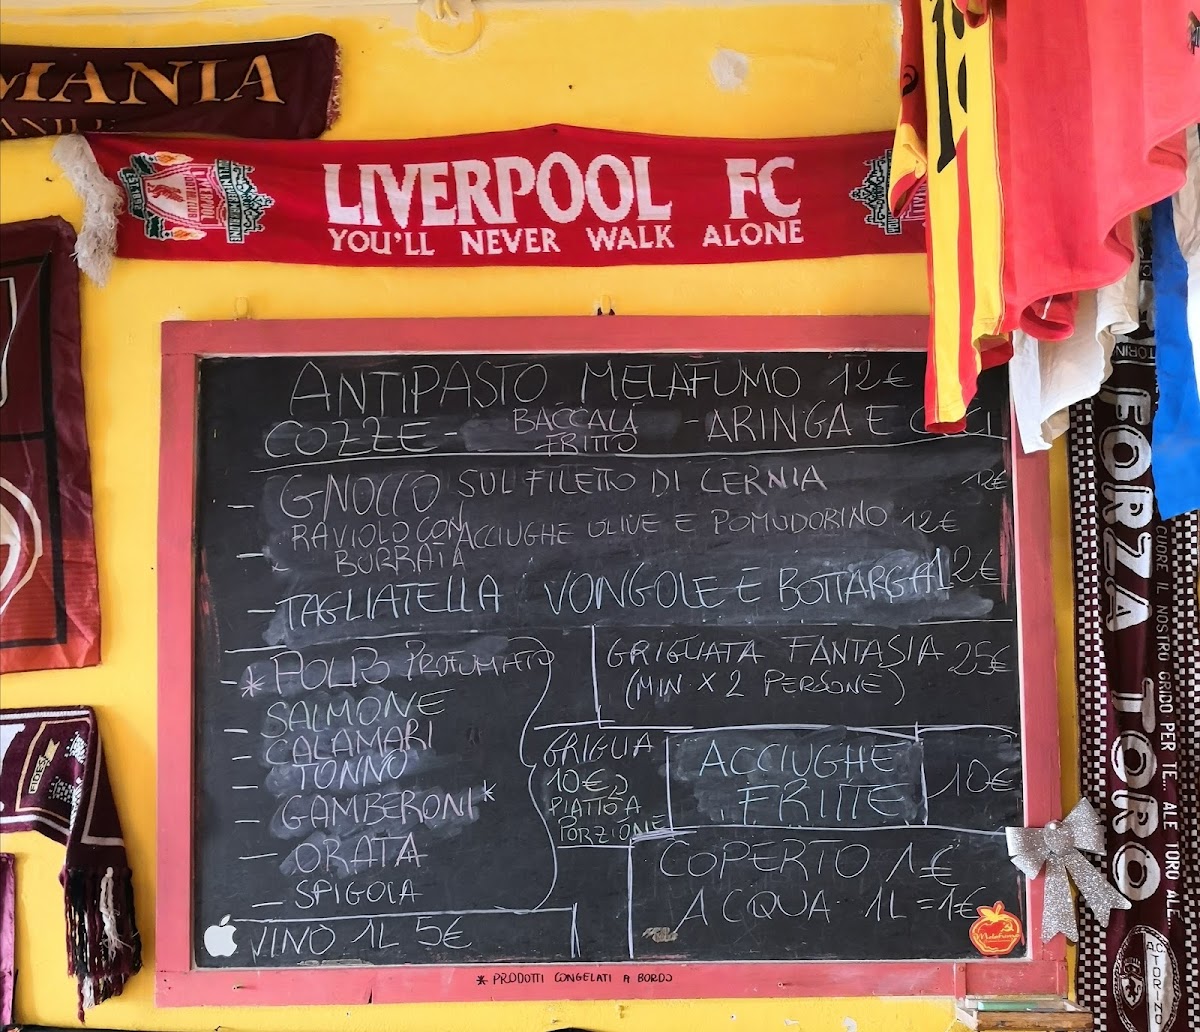 MANIA
LIVERPOOL FC
YOU'LL NEVER WALK ALONE
ANTIPASTO MELAFUMO 12€
COZZE - BACCALÀ FRITTO - ARINGA E
GNOCCO SUL FILETTO DI CERNIA 12€
RAVIOLO CON BURRATA ACCIUGHE OLIVE E POMODORINO 12€
TAGLIATELLA VONGOLE E BOTTARGA 12€
* POLPO PROFUMATO
SALMONE
CALAMARI
TONNO
GAMBERONI*
ORATA
SPIGOLA
GRIGLIATA FANTASIA 25€
(MIN. X 2 PERSONE)
GRIGLIA
10€
PIATTO A
PORZIONE
ACCIUGHE
FRITTE
10€
COPERTO 1€
ACQUA 1L = 1€
VINO 1L 5€
* PRODOTTI CONGELATI A BORDO
TORINO
FORZA TORO
CUORE IL NOSTRO GRIDO PER TE... ALE TORO ALE...
A.C. TORINO
FIDES